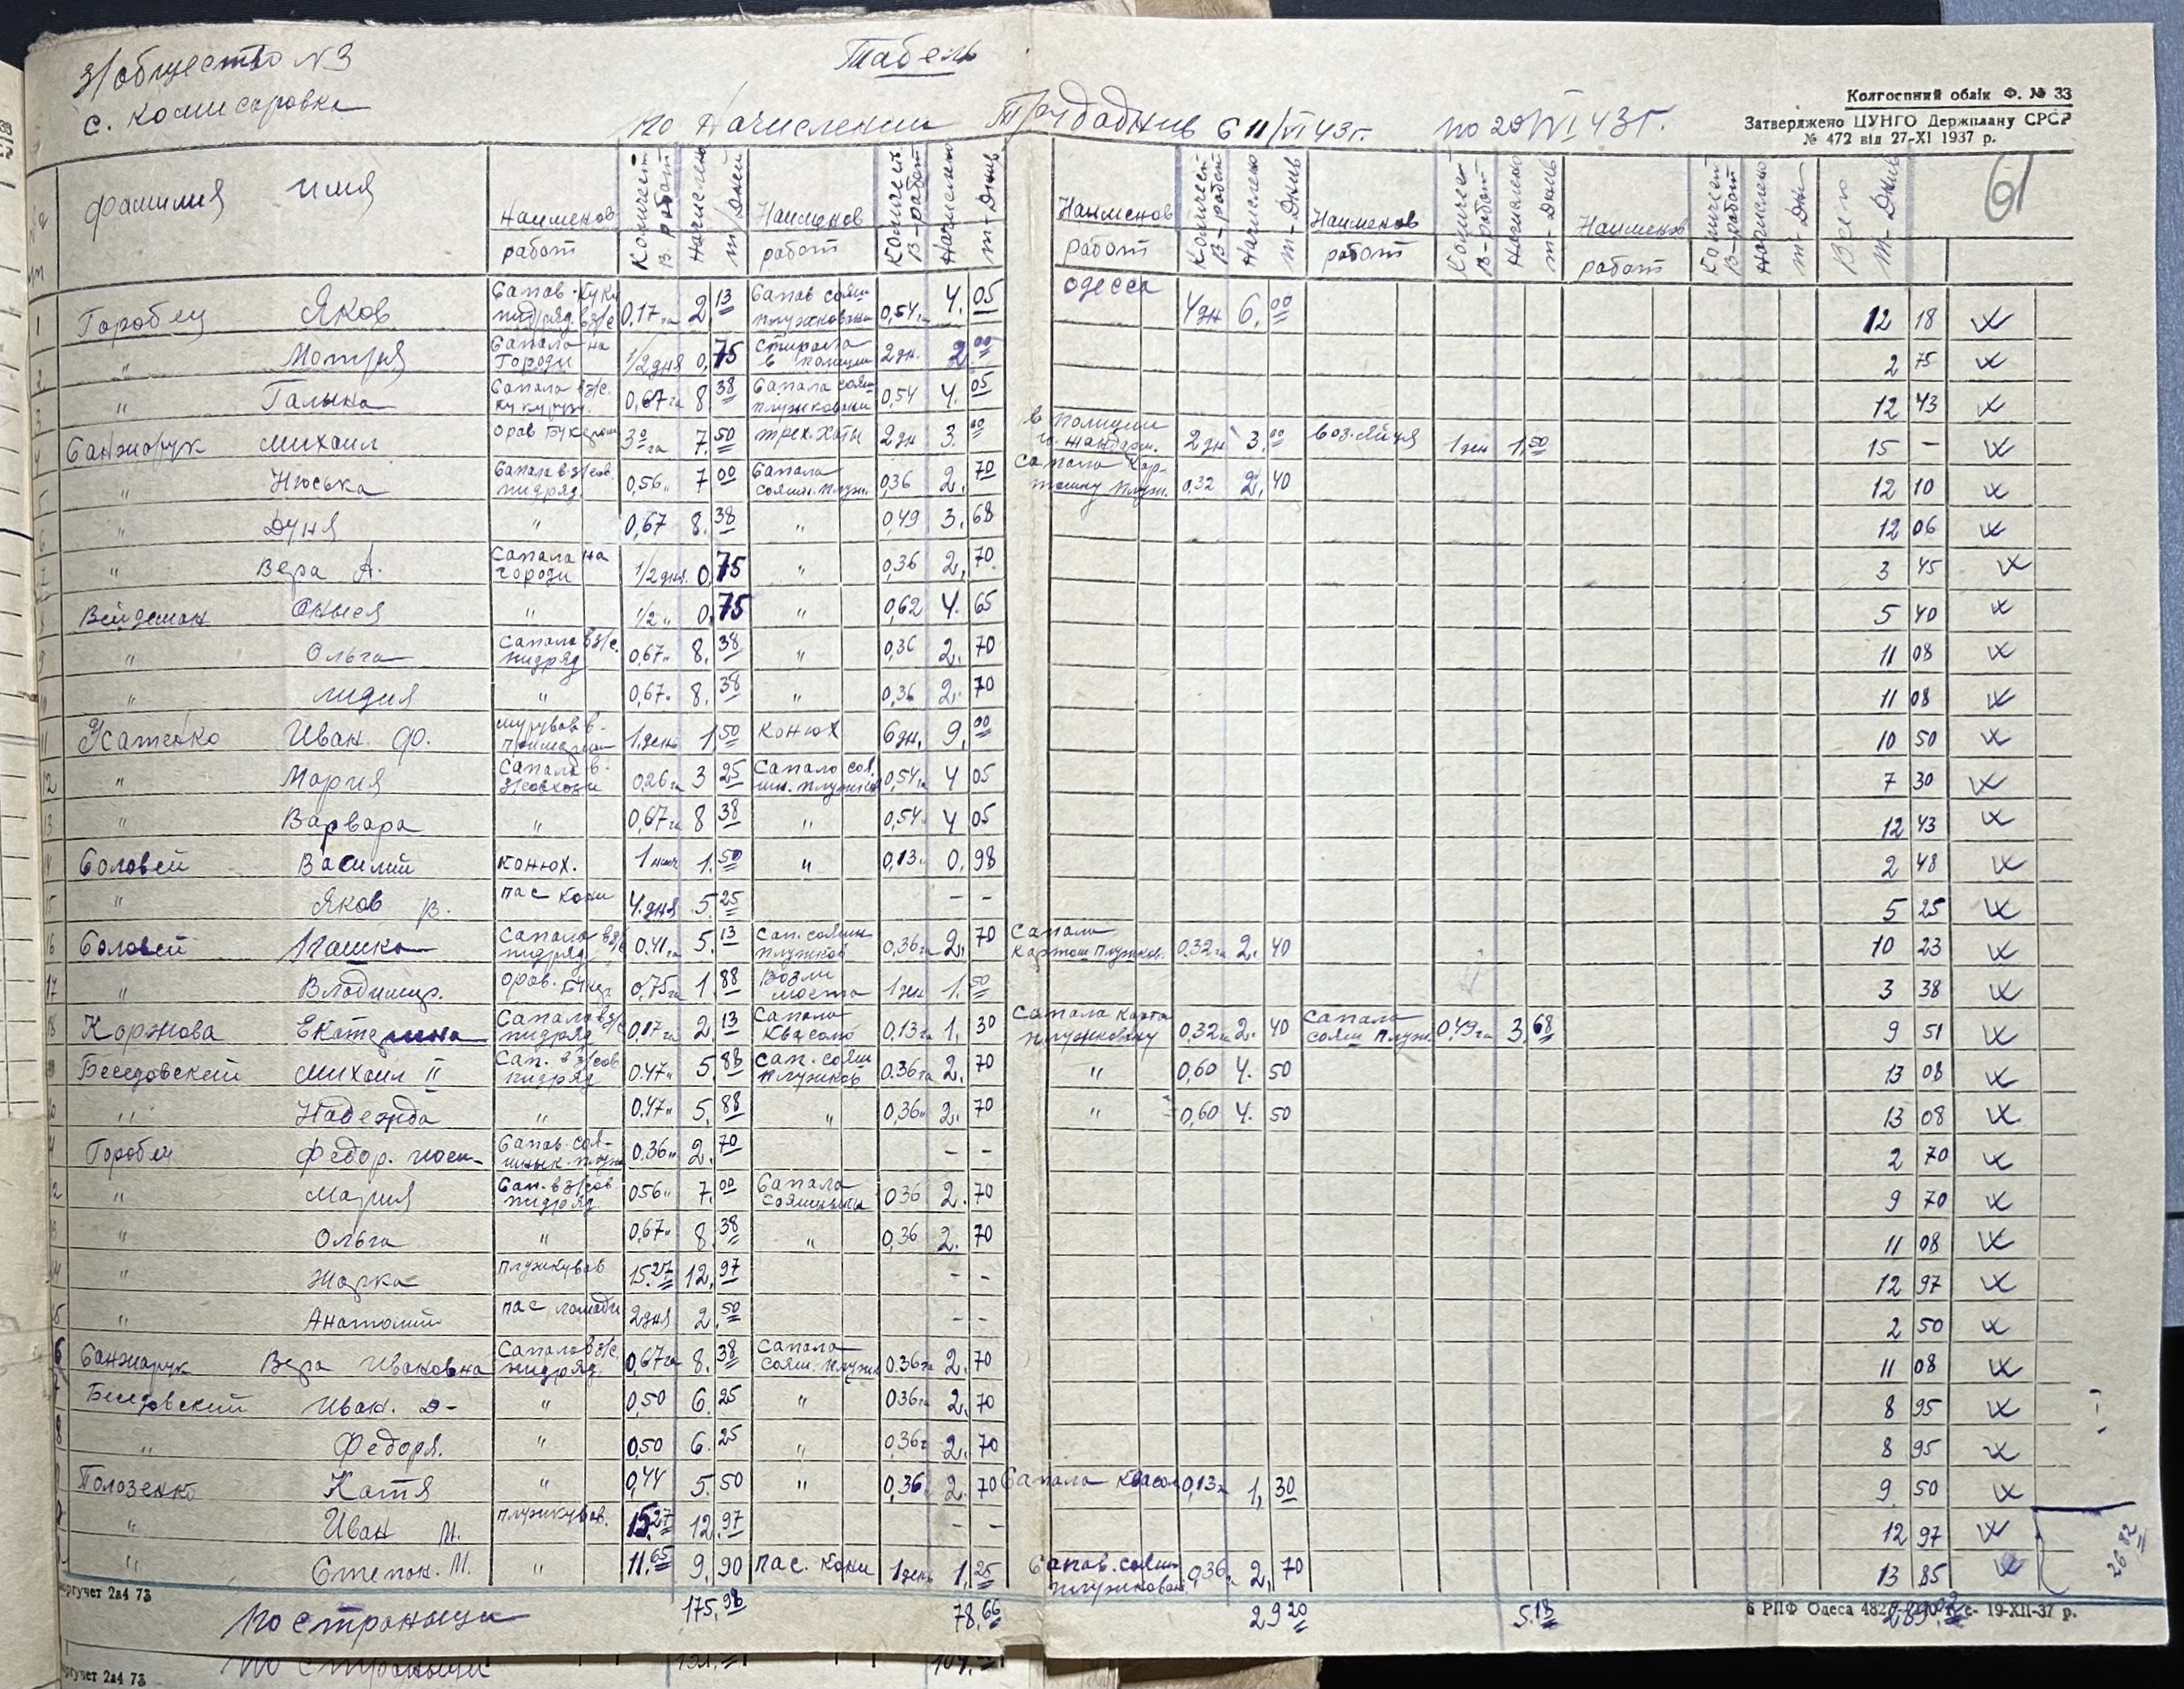 З/общество N3
с. Комисаровка
Табель
по Начислении Трудоднив с 11/VI 43 г. по 20/VI 43 г.
Колгоспний облік Ф. № 33
Затверджено ЦУНГО Держплану СРСР
№ 472 від 27-XI 1937 р.
61
фамилия имя Наименов работ Количест в. работ Начислено т/Дней Наименов работ Количест в-работ Начислено т-Днив Наименов работ Количест в-работ Начислено т-Днив Наименов работ Количест в-работ Начислено т-Днив Наименов работ Количест в-работ Начислено т-Дни Всего т-Днив
1 Горобец Яков Сапав куку пидряд в з/с 0,17 га 2,13 Сапав соян плужкована 0,54 га 4.05 Одесса 4 дн 6.00 12 18
2 " Мотря Сапала на Городи 1/2 дня 0,75 стирала в полиции 2 дн. 2.00 2 75
3 " Галына Сапала в з/с. кукурузу. 0,67 га 8 38 Сапала соян плужковани 0,54 4.05 12 43
4 Санжарук Михаил орав Букером 3 га 7.50 2 дн 3.00 в полиции 2 дн 3.00 воз. яйця 1 ден 1.50 15 –
5 " Нюська Сапала в з/сов. пидряд. 0,56 " 7 00 Сапала соян. плуж. 0,36 2.70 Сапала кар- тошку плуж. 0.32 2.40 12 10
6 " Дуня " 0,67 8.38 " 0,49 3.68 12 06
7 " Вера А. Сапала на городи 1/2 дня. 0,75 " 0,36 2.70 3 45
8 Вейдеман Оныся " 1/2 " 0.75 " 0,62 4.65 5 40
9 " Ольга Сапала в з/с. пидряд 0,67 " 8.38 " 0,36 2.70 11 08
10 " лидия " 0,67 " 8.38 " 0,36 2.70 11 08
11 Усатенко Иван. Ф. 1 день 1.50 конюх 6 дн. 9.00 10 50
12 " Мария Сапала в- з/совхози 0,26 га 3 25 Сапала соя. 0,54 га 4 05 7 30
13 " Варвара " 0,67 га 8 38 " 0,54 4 05 12 43
14 Соловей Василий конюх. 1.50 " 0,13 0.98 2 48
15 " Яков В. пас Кони 4 дня 5.25 – – 5 25
16 Соловей Пашка Сапала в з/с пидряд 0.41 га 5.13 Сап. соян плужков 0,36 га 2.70 Сапала Картош Плужков. 0.32 га 2.40 10 23
17 " Владимир. Орав. Буке. 0,75 га 1.88 Возли моста 1 ден 1.50 3 38
18 Коржова Екатерина Сапала в з/с пидряд 0,17 га 2.13 Сапала Квасолю 0,13 га 1.30 Сапала карто плужковану 0,32 га 2.40 Сапала соян плуж. 0,49 га 3.68 9 51
19 Беседовский Михаил II Сап. в з/сов пидряд 0.47 " 5.88 Сап. соян плужков 0.36 га 2.70 " 0,60 4.50 13 08
20 " Надежда " 0.47 " 5.88 " 0,36 " 2.70 " 0,60 4.50 13 08
Горобец Федор. Сапав. соя- 0.36 " 2.70 – – 2 70
" Мария Сап. в з/сов пидряд. 0,56 " 7.00 Сапала Сояшныкы 0,36 2.70 9 70
" Ольга " 0,67 " 8.38 " 0,36 2.70 11 08
" Жорка плужкував 15.27 12.97 – – 12 97
" Анатолий пас лошади 2 дня 2.50 – – 2 50
6 Санжарук Вера Ивановна Сапала в з/с. пидряд. 0,67 га 8.38 Сапала сояш. плужк 0.36 га 2.70 11 08
7 Беседовский Иван. Д- " 0,50 6.25 " 0,36 га 2.70 8 95
8 " Федоря. " 0,50 6.25 " 0,36 2.70 8 95
Полозенко Катя " 0,44 5.50 " 0,36 2.70 Сапала Квасол 0,13 1.30 9 50
" Иван М. плужкував. 15.27 12.97 – – 12 97
" Степан. М. " 11.65 9.90 пас. кони 1 день 1.25 Сапав. соян плужкован. 0,36 2.70 13 85
26 82
По страныци 175.98 78.66 29 20 5.18
оргучет 2а4 73
6 РПФ Одеса 19-XII-37 р.
по страныци
оргучет 2а4 73